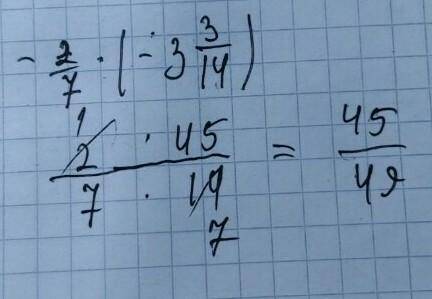 - 2/7 · (- 3 3/14)
1
2 · 45 / 7 · 14 = 45/49
7